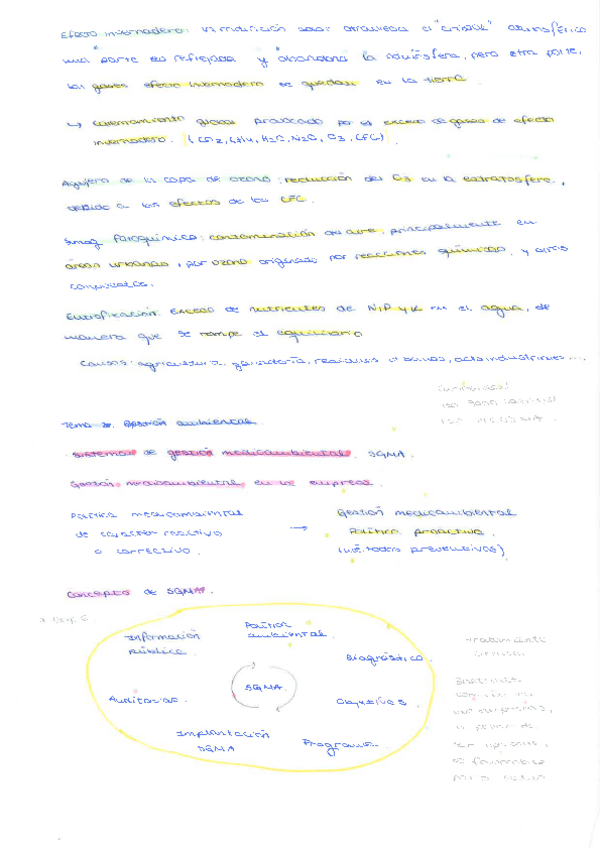 Efecto invernadero: la radiación solar atraviesa el "cristal" atmosférico
una parte es reflejada y abandona la atmósfera, pero otra parte,
los gases efecto invernadero se quedan en la tierra
↳ calentamiento global provocado por el exceso de gases de efecto
invernadero. (CO2, CH4, H2O, N2O, O3, CFC).
Agujero de la capa de ozono: reducción del O3 en la estratosfera,
debido a los efectos de los CFC.
Smog fotoquímico: contaminación del aire, principalmente en
áreas urbanas, por ozono originado por reacciones químicas, y otros
compuestos.
Eutrofización: exceso de nutrientes de N, P y K en el agua, de
manera que se rompe el equilibrio
Causas: agricultura, ganadería, residuos urbanos, act. industriales...
Tema 2. Gestión ambiental
Sistemas de gestión medioambiental. SGMA.
Gestión medioambiental en la empresa.
Política medioambiental
de reactivo
o correctivo.
→ Gestión medioambiental
Política proactiva.
(métodos preventivos)
Concepto de SGMA.
Política
ambiental.
Información
pública.
Diagnóstico.
SGMA.
Auditorías.
Objetivos
Implantación
SGMA
Programa.